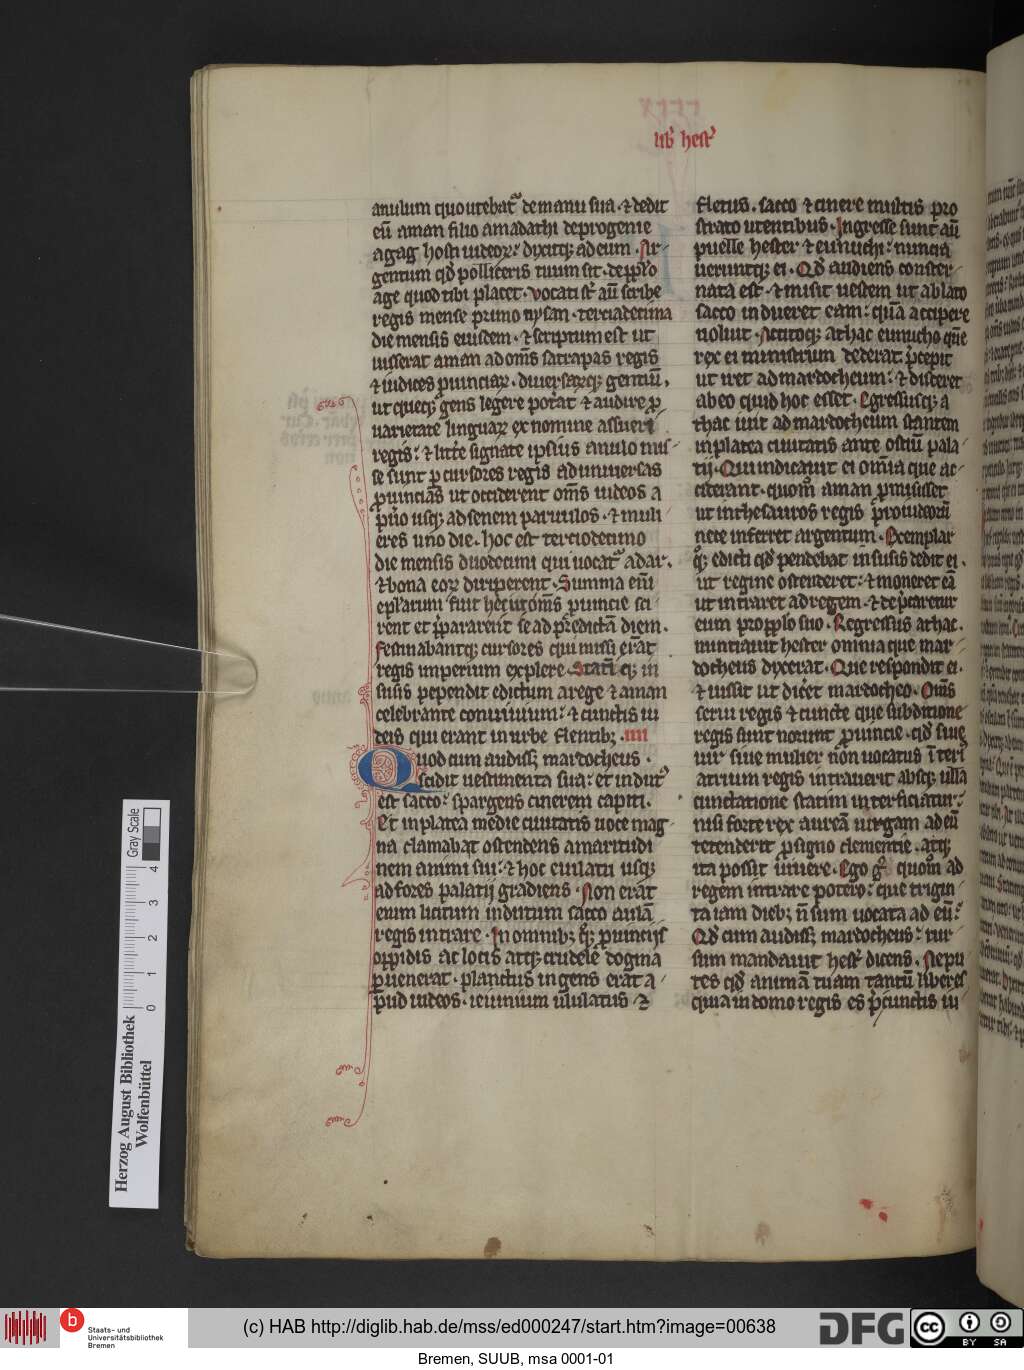 lib̃ hest᷒
anulum quo utebat᷒ de manu sua · ⁊ dedit
eū aman filio amadathi de progenie
agag hosti iudeoꝝ : dixitqꝫ ad eum · Ar
gentum qđ polliceris tuum sit · de pp̄lo
age quod tibi placet · Vocati st̄ aū scribe
regis mense primo nysan · terciadecima
die mensis eiusdem · ⁊ scriptum est ut
iusserat aman ad om̄s satrapas regis
⁊ iudices ꝓuinciaꝝ · diuersaꝝqꝫ gentiū ·
ut queqꝫ gens legere potat ⁊ audire ꝓ
uarietate linguaꝝ ex nomine assueri
regis : ⁊ litt̄e signate ipsius anulo mis
se sunt ꝑ cursores regis ad uniuersas
ꝓuincias ut occiderent om̄s iudeos a
pu̅o usqꝫ ad senem paruulos · ⁊ muli
eres uno die · hoc est terciodecimo
die mensis duodecimi qui uocat᷒ adar ·
⁊ bona eoꝝ diriperent · Summa en̄i
ep̄larum fuit hec ut om̄s ꝓuincie sci
rent et ꝑpararent se ad p̄redictā diem ·
festinabantqꝫ cursores qui missi erāt
regis imperium explere · Statī qꝫ in
susis pependit edictum a rege ⁊ aman
celebrante conuiuium : ⁊ cunctis iu
deis qui erant in urbe flentibꝫ · IIII
Quod cum audissꝫ mardocheus ·
scidit uestimenta sua : et indut᷒
est sacco : spargens cinerem capiti ·
Et in platea medie ciuitatis uoce mag
na clamabat ostendens amaritudi
nem animi sui : ⁊ hoc eiulatu usqꝫ
ad fores palatij gradiens · Non erāt
enim licitum indutum sacco aulā
regis intrare · In omnibꝫ qꝫ ꝓuincijs
oppidis ac locis atqꝫ crudele dogma
ꝑuenerat · planctus ingens erāt a
pud iudeos · ieiunium ululatus · ⁊
fletus · sacco ⁊ cinere multis pro
strato utentibus · Ingresse sunt aū
puelle hester ⁊ eunuchi : nuncia
ueruntqꝫ ei · Qđ audiens conster
nata est · ⁊ misit uestem ut ablato
sacco indueret eam : quā accipere
noluit · Accitoqꝫ athac eunucho quē
rex ei ministrum dederat p̄cepit
ut iret ad mardocheum : ⁊ disceret
ab eo quid hoc esset · Egressusqꝫ a
thac iuit ad mardocheum stantem
in platea ciuitatis ante ostiū pala
tij · Qui indicauit ei om̄ia que ac
ciderant · quom̄ aman ꝓmisisset
ut in thesauros regis pro iudeorū
nece inferret argentum · Exemplar
qꝫ edicti qđ pendebat in susis dedit ei ·
ut regine ostenderet : ⁊ moneret eā
ut intraret ad regem · ⁊ dep̄caretur
eum pro pp̄lo suo · Regressus athac ·
nuntiauit hester omnia que mar
docheus dixerat · Que respondit ei ·
⁊ iussit ut dic̄et mardocheo · Om̄s
serui regis ⁊ cuncte que sub ditione
regis sunt norunt ꝓuincie · qđ siue
uir siue mulier non uocatus ī teri᷒
atrium regis intrauerit absqꝫ ulla
cunctatione statim interficiatur :
nisi forte rex aureā uirgam ad eū
tetenderit ꝓ signo clementie · atqꝫ
ita possit uiuere · Ego g᷒ quom̄ ad
regem intrare potero : que trigin
ta iam diebꝫ n̄ sum uocata ad eū :
Qđ cum audissꝫ mardocheus : rur
sum mandauit hest᷒ dicens · Ne pu
tes qđ animā tuam tantū liberes
quia in domo regis es p̄ cunctis iu
Gray Scale
4
3
2
1
0
Herzog August Bibliothek
Wolfenbüttel
b
Staats- und
Universitätsbibliothek
Bremen
(c) HAB http://diglib.hab.de/mss/ed000247/start.htm?image=00638
DFG
cc
BY SA
Bremen, SUUB, msa 0001-01